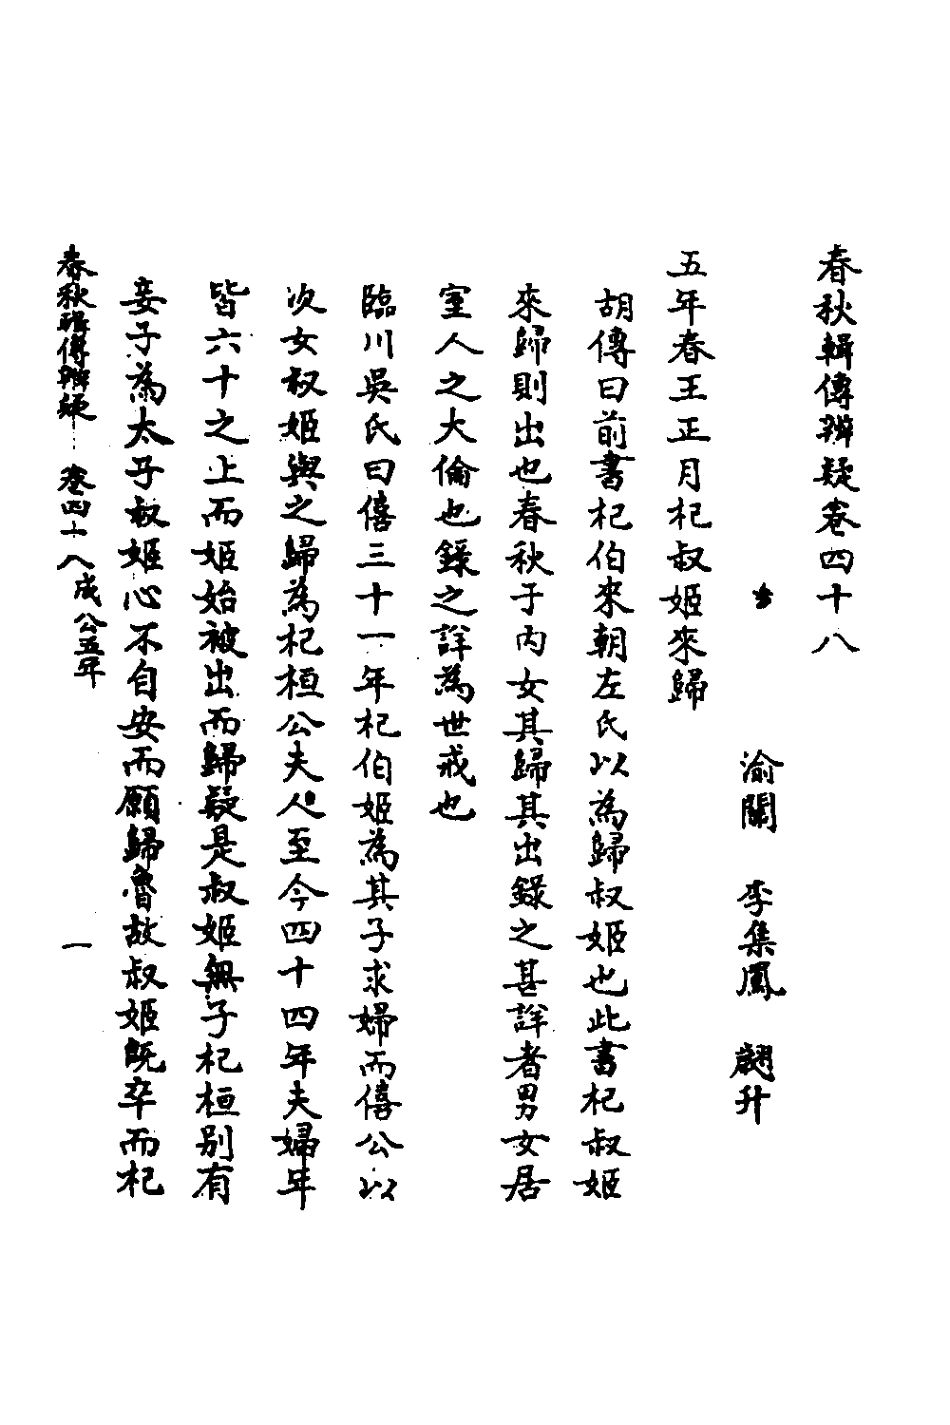 春秋輯傳辨疑卷四十八
渝關　李集鳳　翽升
五年春王正月杞叔姬來歸
胡傳曰前書杞伯來朝左氏以為歸叔姬也此書杞叔姬
來歸則出也春秋于內女其歸其出錄之甚詳者男女居
室人之大倫也錄之詳為世戒也
臨川吳氏曰僖三十一年杞伯姬為其子求婦而僖公以
次女叔姬與之歸為杞桓公夫人至今四十四年夫婦年
皆六十之上而姬始被出而歸疑是叔姬無子杞桓別有
妾子為太子叔姬心不自安而願歸魯故叔姬既卒而杞
春秋輯傳辨疑　卷四十八　成公五年　一